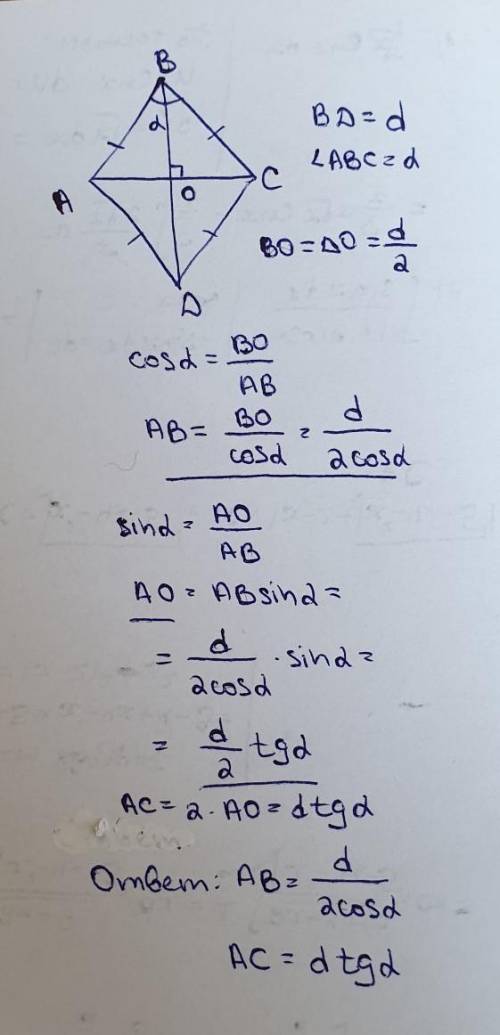 B
α
A
O
C
D
BD = d
∠ABC = α
BO = DO = d/2
cosα = BO/AB
AB = BO/cosα = d/2cosα
sinα = AO/AB
AO = ABsinα =
= d/2cosα · sinα =
= d/2 tgα
AC = 2 · AO = d tgα
Ответ: AB = d/2cosα
AC = d tgα